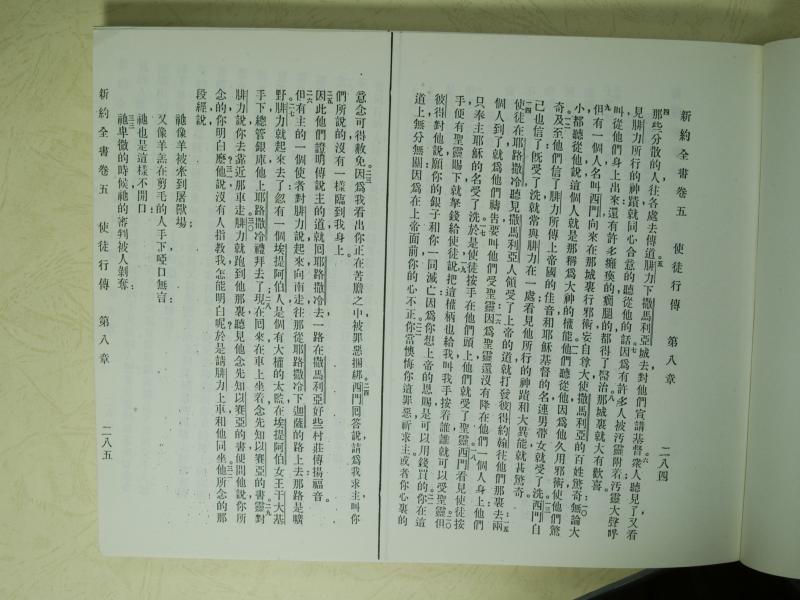 新約全書卷五 使徒行傳 第八章 二八四
四那些分散的人往各處去傳道五腓力下撒馬利亞城去對他們宣講基督六衆人聽見了又看
見腓力所行的神蹟就同心合意的聽從他的話七因爲有許多人被汚靈附着汚靈大聲呼
叫從他們身上出來還有許多癱瘓的瘸腿的都得了醫治八那城裏就大有歡喜
九但有一個人名叫西門向來在那城裏行邪術妄自尊大使撒馬利亞的百姓驚奇一〇無論大
小都聽從他說這個人就是那稱爲大神的權能一一他們聽從他因爲他久用邪術使他們驚
奇一二及至他們信了腓力所傳上帝國的佳音和耶穌基督的名連男帶女就受了洗一三西門自
己也信了旣受了洗就常與腓力在一處看見他所行的神蹟和大異能就甚驚奇
一四使徒在耶路撒冷聽見撒馬利亞人領受了上帝的道就打發彼得約翰往他們那裏去一五兩
個人到了就爲他們禱告要叫他們受聖靈一六因爲聖靈還沒有降在他們一個人身上他們
只奉主耶穌的名受了洗一七於是使徒按手在他們頭上他們就受了聖靈一八西門看見使徒按
手便有聖靈賜下就拏錢給使徒一九說把這權柄也給我叫我手按着誰誰就可以受聖靈二〇但
彼得對他說願你的銀子和你一同滅亡因爲你想上帝的恩賜是可以用錢買的二一你在這
道上無分無關因爲在上帝面前你的心不正二二你當懊悔你這罪惡祈求主或者你心裏的
意念可得赦免二三因爲我看出你正在苦膽之中被罪惡捆綁二四西門回答說請爲我求主叫你
們所說的沒有一樣臨到我身上
二五因此他們證明傳說主的道就回耶路撒冷去一路在撒馬利亞好些村莊傳揚福音
二六但有主的一個使者對腓力說起來向南走往那從耶路撒冷下迦薩的路上去那路是曠
野二七腓力就起來去了忽有一個埃提阿伯人是個有大權的太監在埃提阿伯女王干大基
手下總管銀庫他上耶路撒冷禮拜去了二八現在回來在車上坐着念先知以賽亞的書二九靈對
腓力說你去靠近那車走三〇腓力就跑到他那裏聽見他念先知以賽亞的書便問他說你所
念的你明白麽三一他說沒有人指敎我怎能明白呢於是請腓力上車和他同坐三二他所念的那
段經說
祂像羊被牽到屠獸場
又像羊羔在剪毛的人手下啞口無言
祂也是這樣不開口
三三祂卑微的時候祂的審判被人剝奪
新約全書卷五 使徒行傳 第八章 二八五